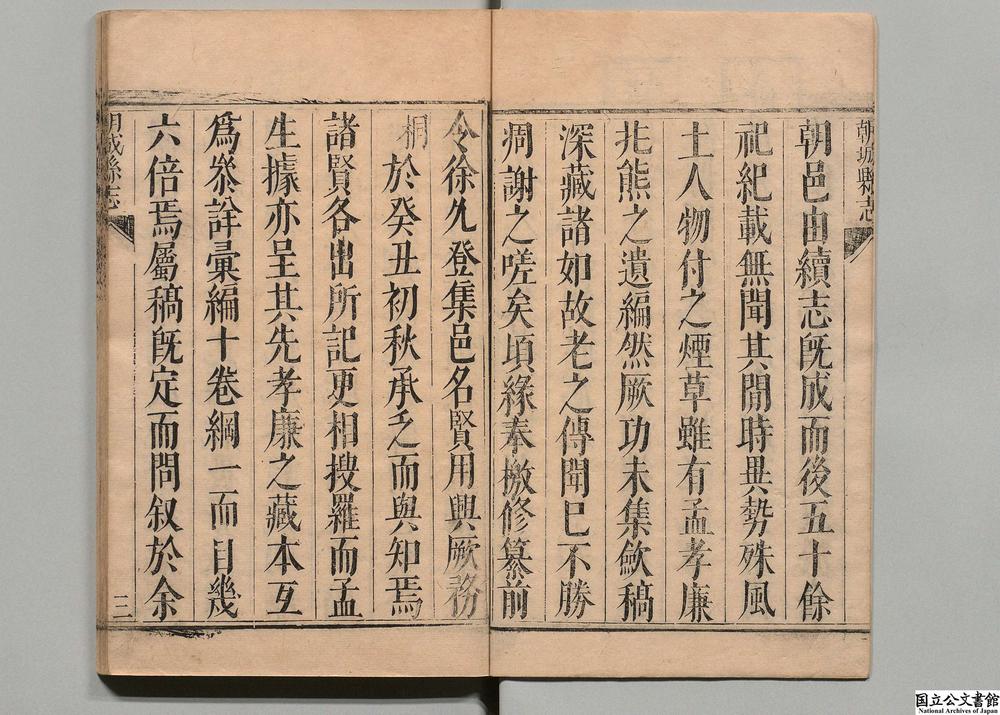 朝城縣志
朝邑由續志旣成而後五十餘
祀紀載無聞其間時異勢殊風
土人物付之煙草雖有孟孝廉
兆熊之遺編然厥功未集歛稿
深藏諸如故老之傳聞已不勝
凋謝之嗟矣頃緣奉檄修纂前
令徐允登集邑名賢用興厥務
桐於癸丑初秋承乏而與知焉
諸賢各出所記更相搜羅而孟
生據亦呈其先孝廉之藏本互
爲叅詳彙編十卷綱一而目幾
六倍焉屬稿旣定而問叙於余
朝城縣志
三
国立公文書館
National Archives of Japan